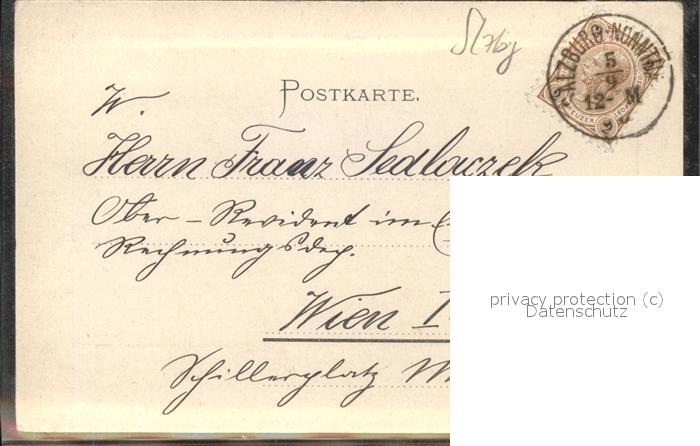 SALZBURG NONNTAL
5
9
12- M
POSTKARTE.
W.
Herrn Franz Sedlaczek
Ober-Revident im
Rechnungsdep.
Wien I
Schillerplatz
privacy protection (c)
Datenschutz